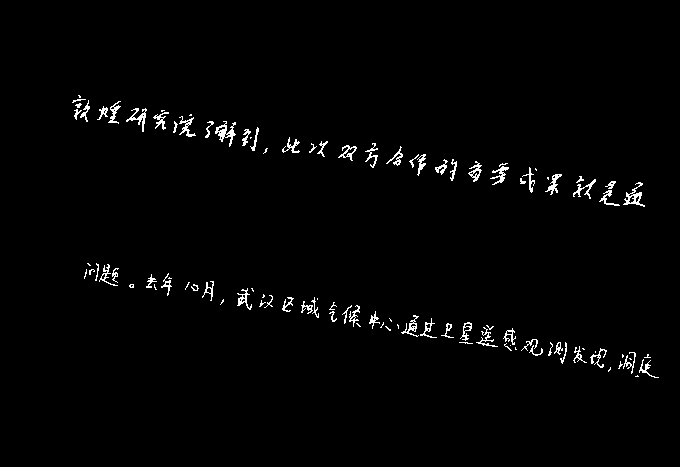 敦煌研究院了解到，此次双方合作的重要成果就是通
问题。去年10月，武汉区域气候中心通过卫星遥感观测发现，洞庭